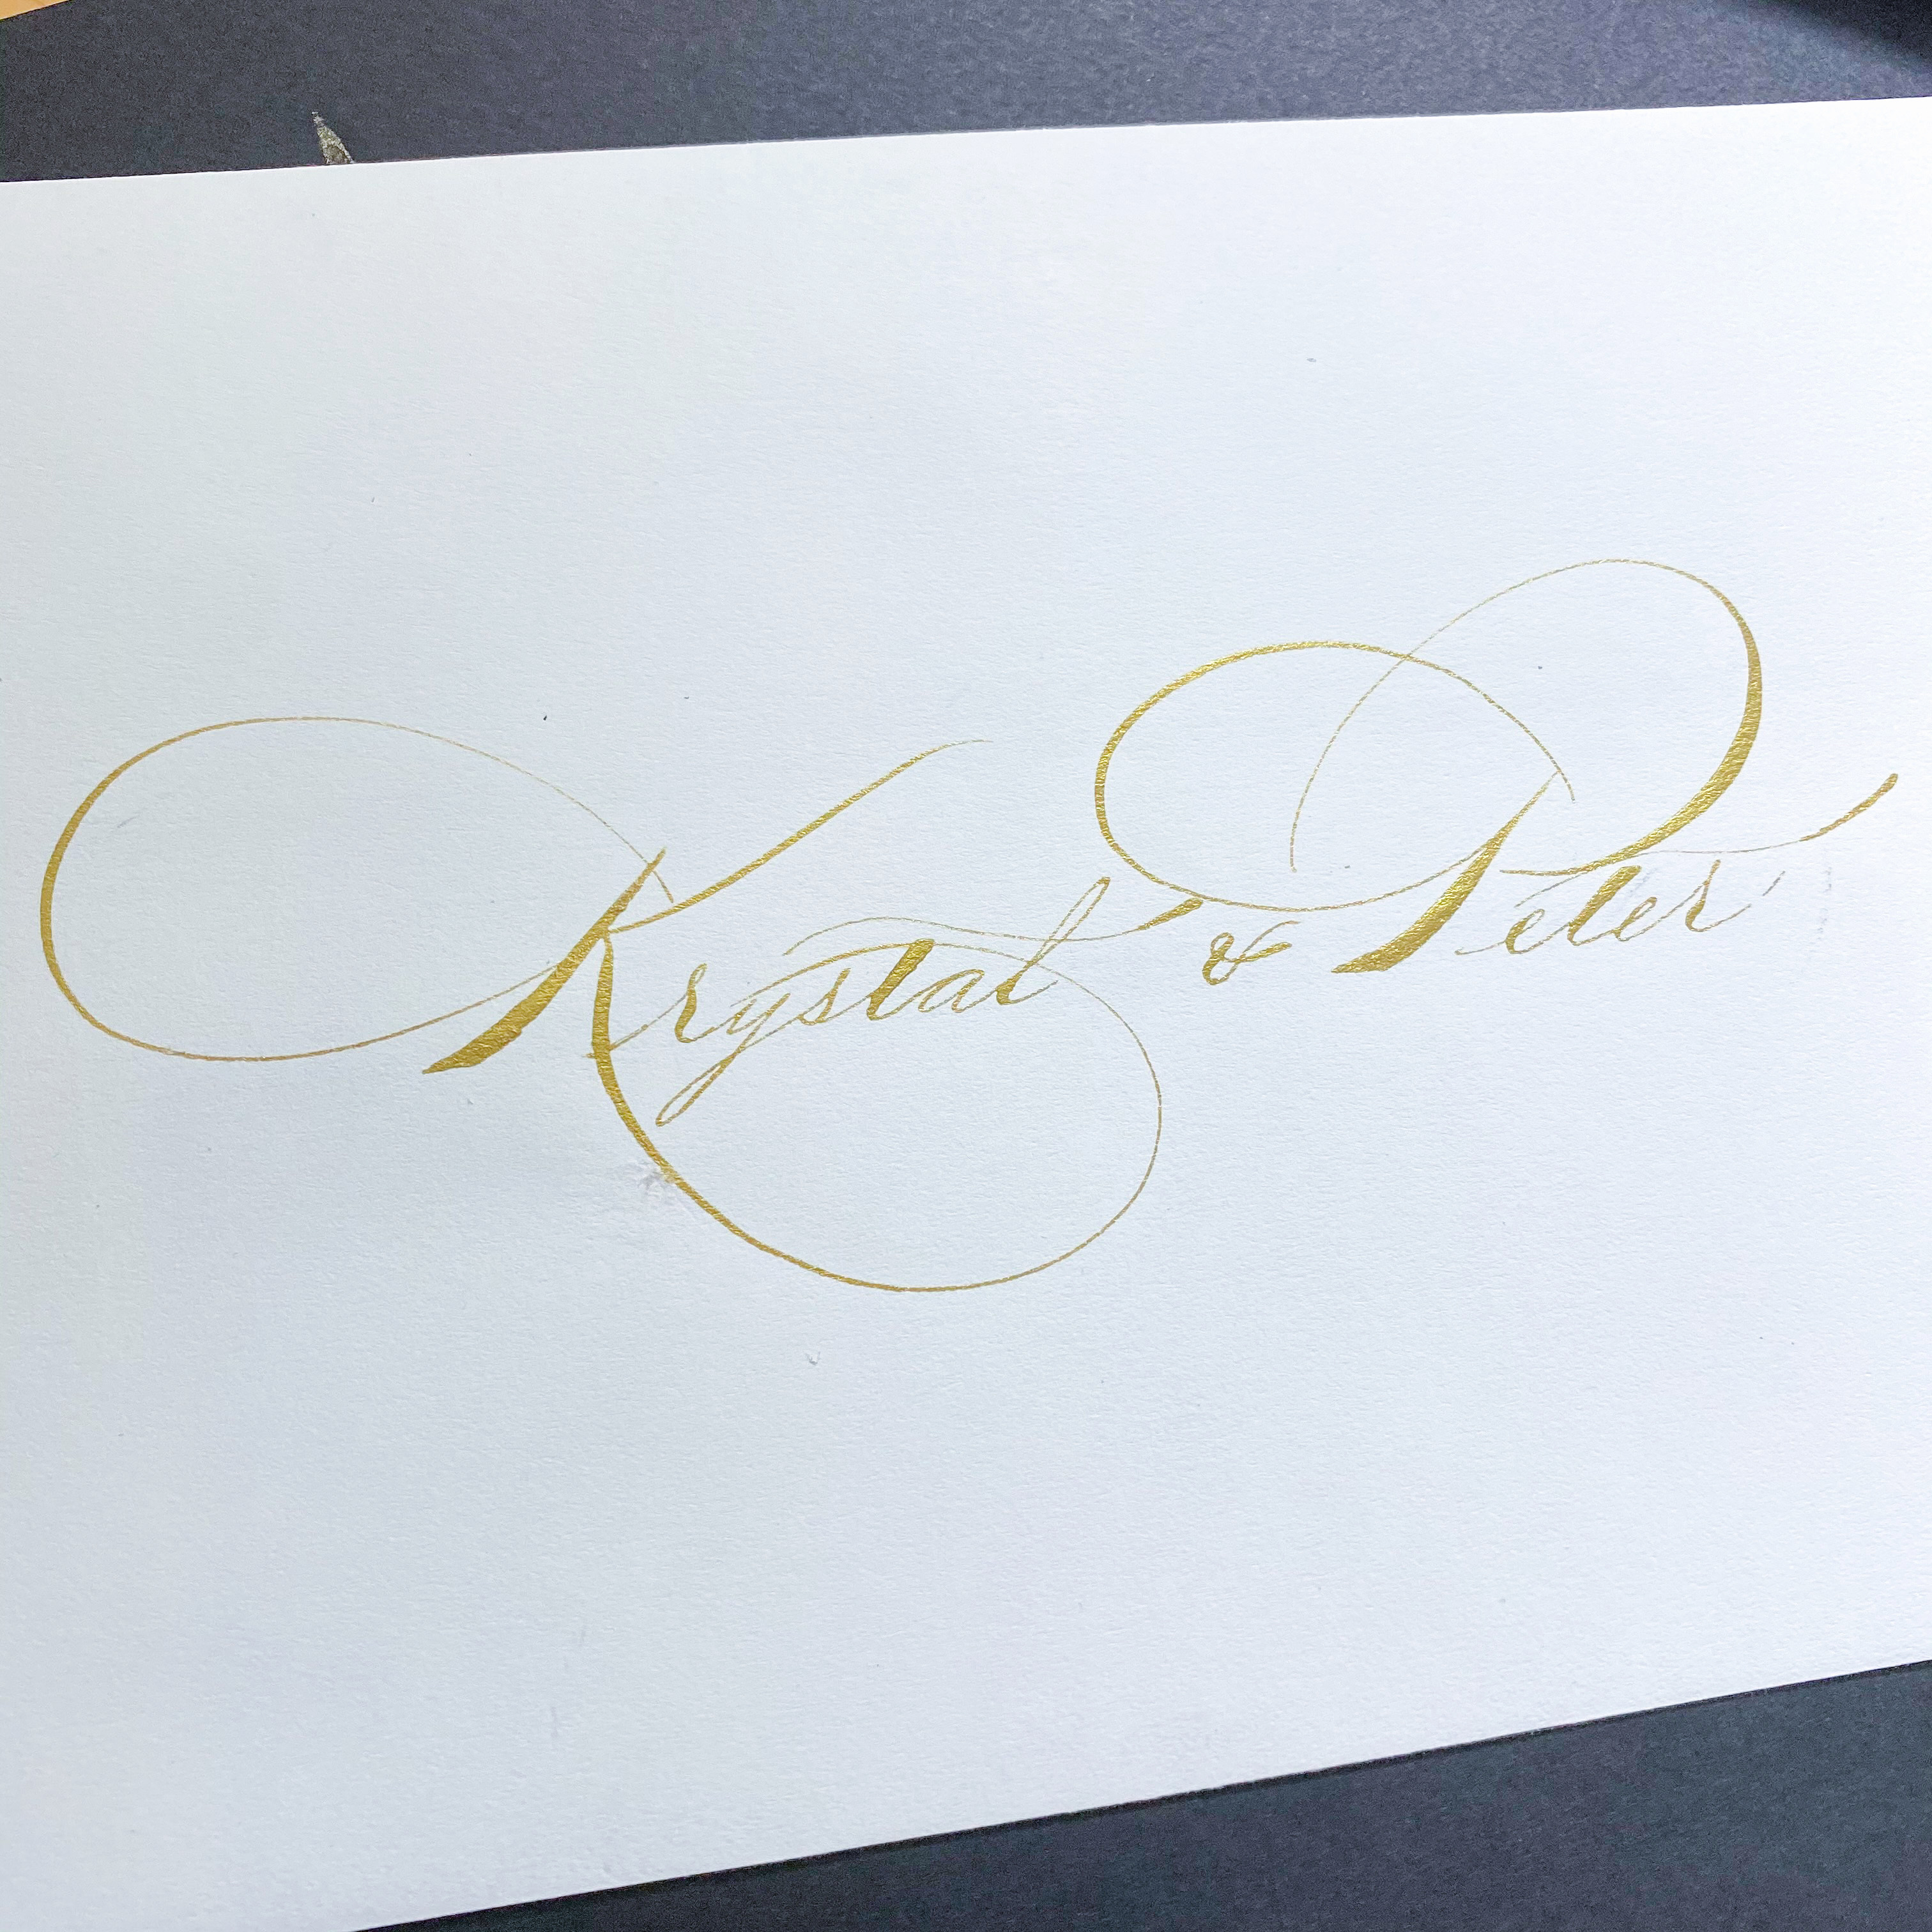 Krystal & Peter